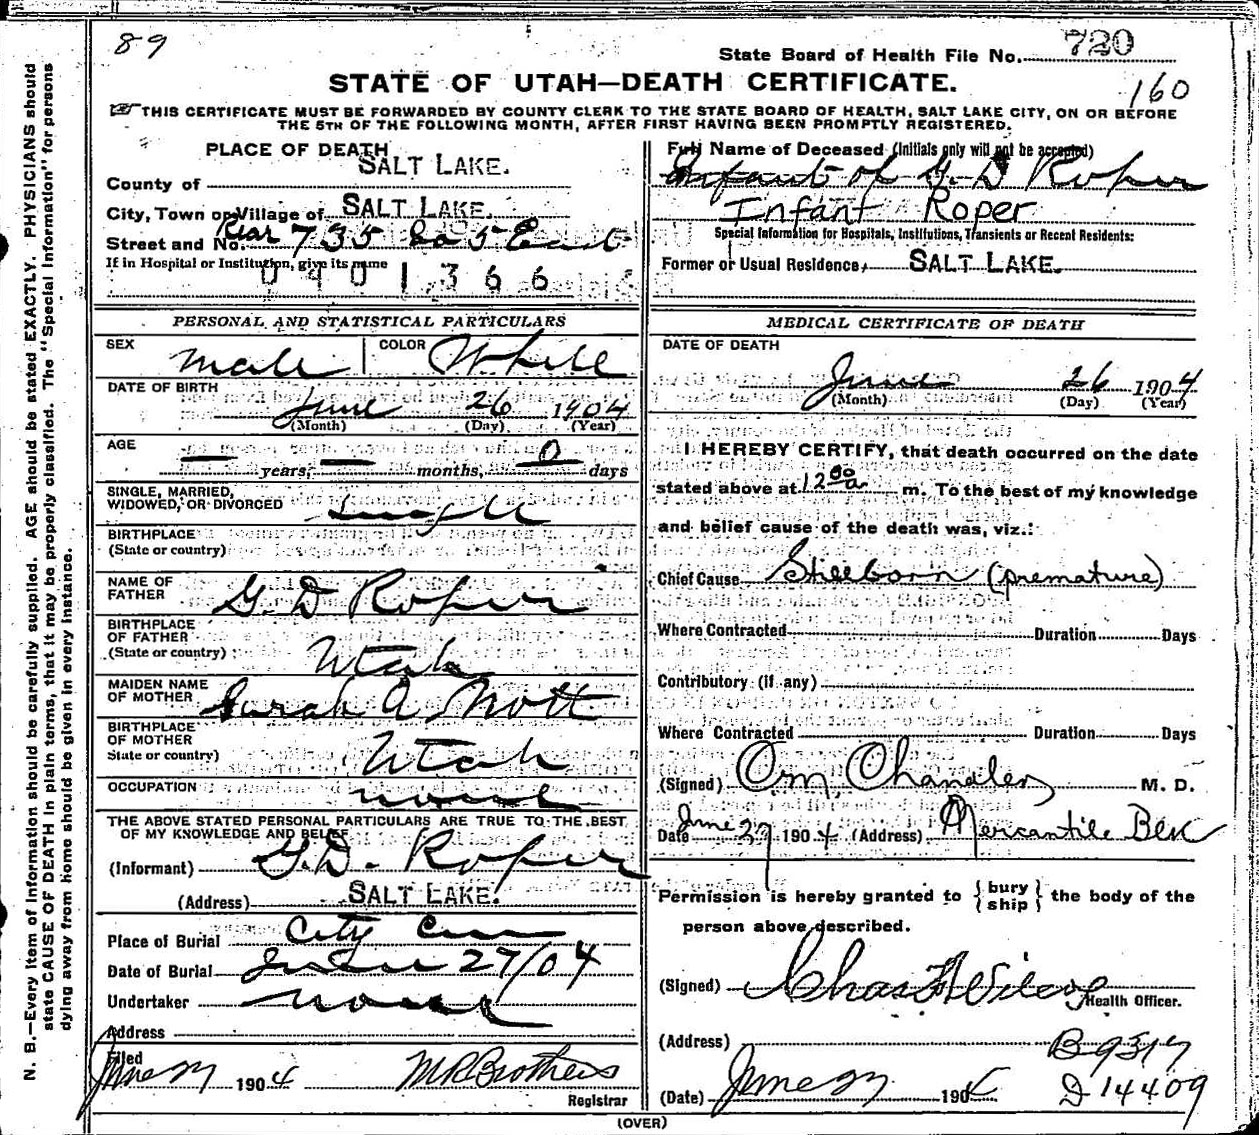 89
State Board of Health File No. 720
STATE OF UTAH—DEATH CERTIFICATE.
160
THIS CERTIFICATE MUST BE FORWARDED BY COUNTY CLERK TO THE STATE BOARD OF HEALTH, SALT LAKE CITY, ON OR BEFORE
THE 5TH OF THE FOLLOWING MONTH, AFTER FIRST HAVING BEEN PROMPTLY REGISTERED.
PLACE OF DEATH
County of SALT LAKE.
City, Town or Village of SALT LAKE.
Street and No. Rear 735 So 5 East
If in Hospital or Institution, give its name
0401366
PERSONAL AND STATISTICAL PARTICULARS
SEX Male COLOR White
DATE OF BIRTH
June 26 1904
(Month) (Day) (Year)
AGE
— years, — months, 0 days
SINGLE, MARRIED,
WIDOWED, OR DIVORCED Single
BIRTHPLACE
(State or country)
NAME OF
FATHER G. D Roper
BIRTHPLACE
OF FATHER
(State or country) Utah
MAIDEN NAME
OF MOTHER Sarah A Mott
BIRTHPLACE
OF MOTHER
State or country) Utah
OCCUPATION none
THE ABOVE STATED PERSONAL PARTICULARS ARE TRUE TO THE BEST
OF MY KNOWLEDGE AND BELIEF
(Informant) G. D. Roper
(Address) SALT LAKE.
Place of Burial City Cem
Date of Burial June 27/04
Undertaker none
Address
Filed
June 27 1904 M R Brothers
Registrar
Full Name of Deceased (Initials only will not be accepted)
Infant of G. D Roper
Infant Roper
Special Information for Hospitals, Institutions, Transients or Recent Residents:
Former or Usual Residence, SALT LAKE.
MEDICAL CERTIFICATE OF DEATH
DATE OF DEATH
June 26 1904
(Month) (Day) (Year)
I HEREBY CERTIFY, that death occurred on the date
stated above at 12 00 a m. To the best of my knowledge
and belief cause of the death was, viz.:
Chief Cause Stillborn (premature)
Where Contracted Duration Days
Contributory (if any)
Where Contracted Duration Days
(Signed) O M Chandler M. D.
Date June 27 1904 (Address) Mercantile Blk
Permission is hereby granted to { bury ship } the body of the
person above described.
(Signed) Chas F Wilcox
Health Officer.
(Address) B 9317
(Date) June 27 1904 D 14409
(OVER)
N. B.—Every item of information should be carefully supplied. AGE should be stated EXACTLY. PHYSICIANS should
state CAUSE OF DEATH in plain terms, that it may be properly classified. The "Special Information" for persons
dying away from home should be given in every instance.